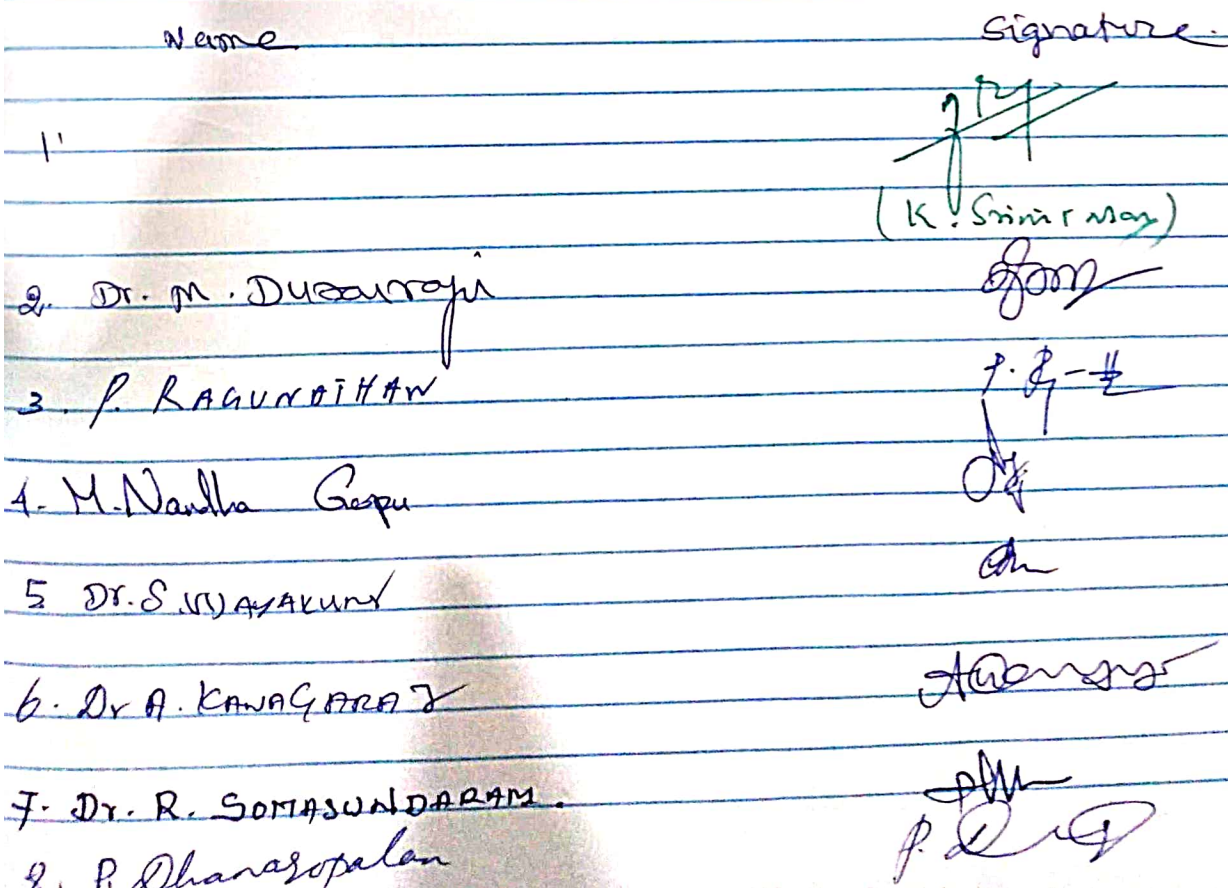 Name Signature.
1'
(K. Srinivasan)
2. Dr. M. Duraıraju
3. P. RAGUNATHAN
4. M. Nandha Gopu
5 Dr. S VIJAYAKUMAR
6. Dr A. KANAGARAJ
7. Dr. R. SOMASUNDARAM.
8. P. Dhanagopalan